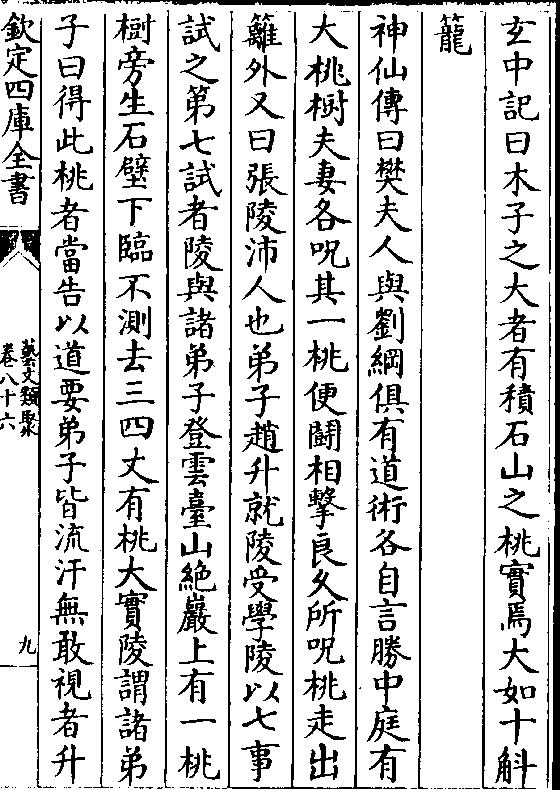 玄中記曰木子之大者有積石山之桃實焉大如十斛
籠
神仙傳曰樊夫人與劉綱俱有道術各自言勝中庭有
大桃樹夫妻各呪其一桃便鬭相擊良久所呪桃走出
籬外又曰張陵沛人也弟子趙升就陵受學陵以七事
試之第七試者陵與諸弟子登雲臺山絶巖上有一桃
樹旁生石壁下臨不測去三四丈有桃大實陵謂諸弟
子曰得此桃者當告以道要弟子皆流汗無敢視者升
欽定四庫全書
藝文類聚
卷八十六
九